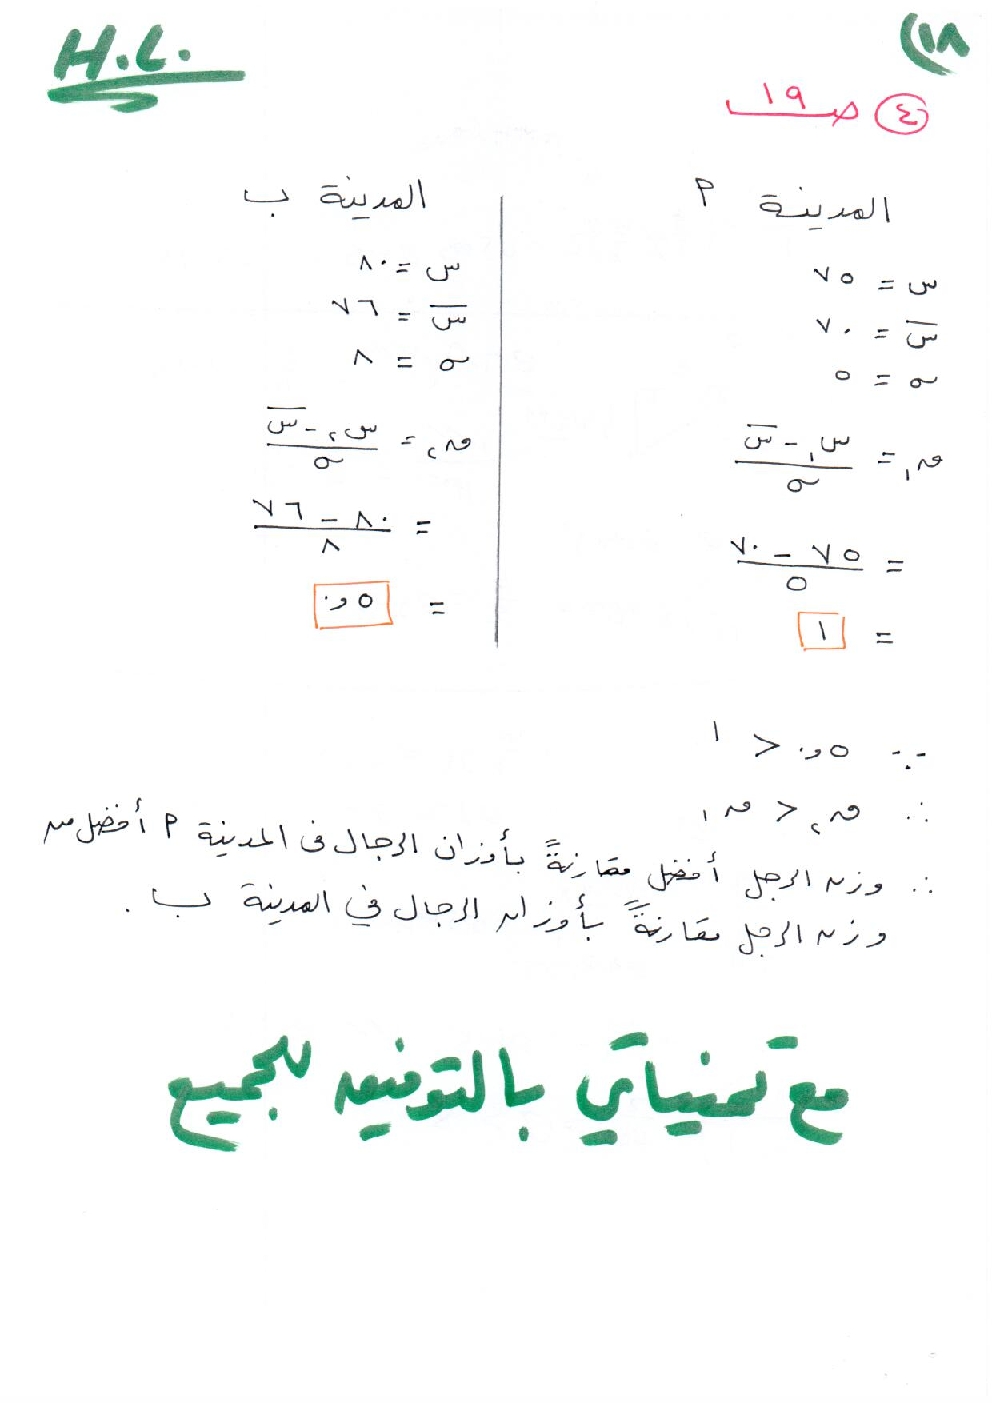 ١٨)
H.L.
④ صـ ١٩
المدينة أ
س = ٧٥
س̅ = ٧٠
σ = ٥
ق١ = (س١ - س̅) / σ
= (٧٥ - ٧٠) / ٥
= ١
المدينة ب
س = ٨٠
س̅ = ٧٦
σ = ٨
ق٢ = (س٢ - س̅) / σ
= (٨٠ - ٧٦) / ٨
= ٠,٥
∵ ٠,٥ < ١
∴ ق٢ < ق١
∴ وزن الرجل أفضل مقارنةً بأوزان الرجال فى المدينة أ أفضل من
وزن الرجل مقارنةً بأوزان الرجال في المدينة ب .
مع تمنياتي بالتوفيق للجميع